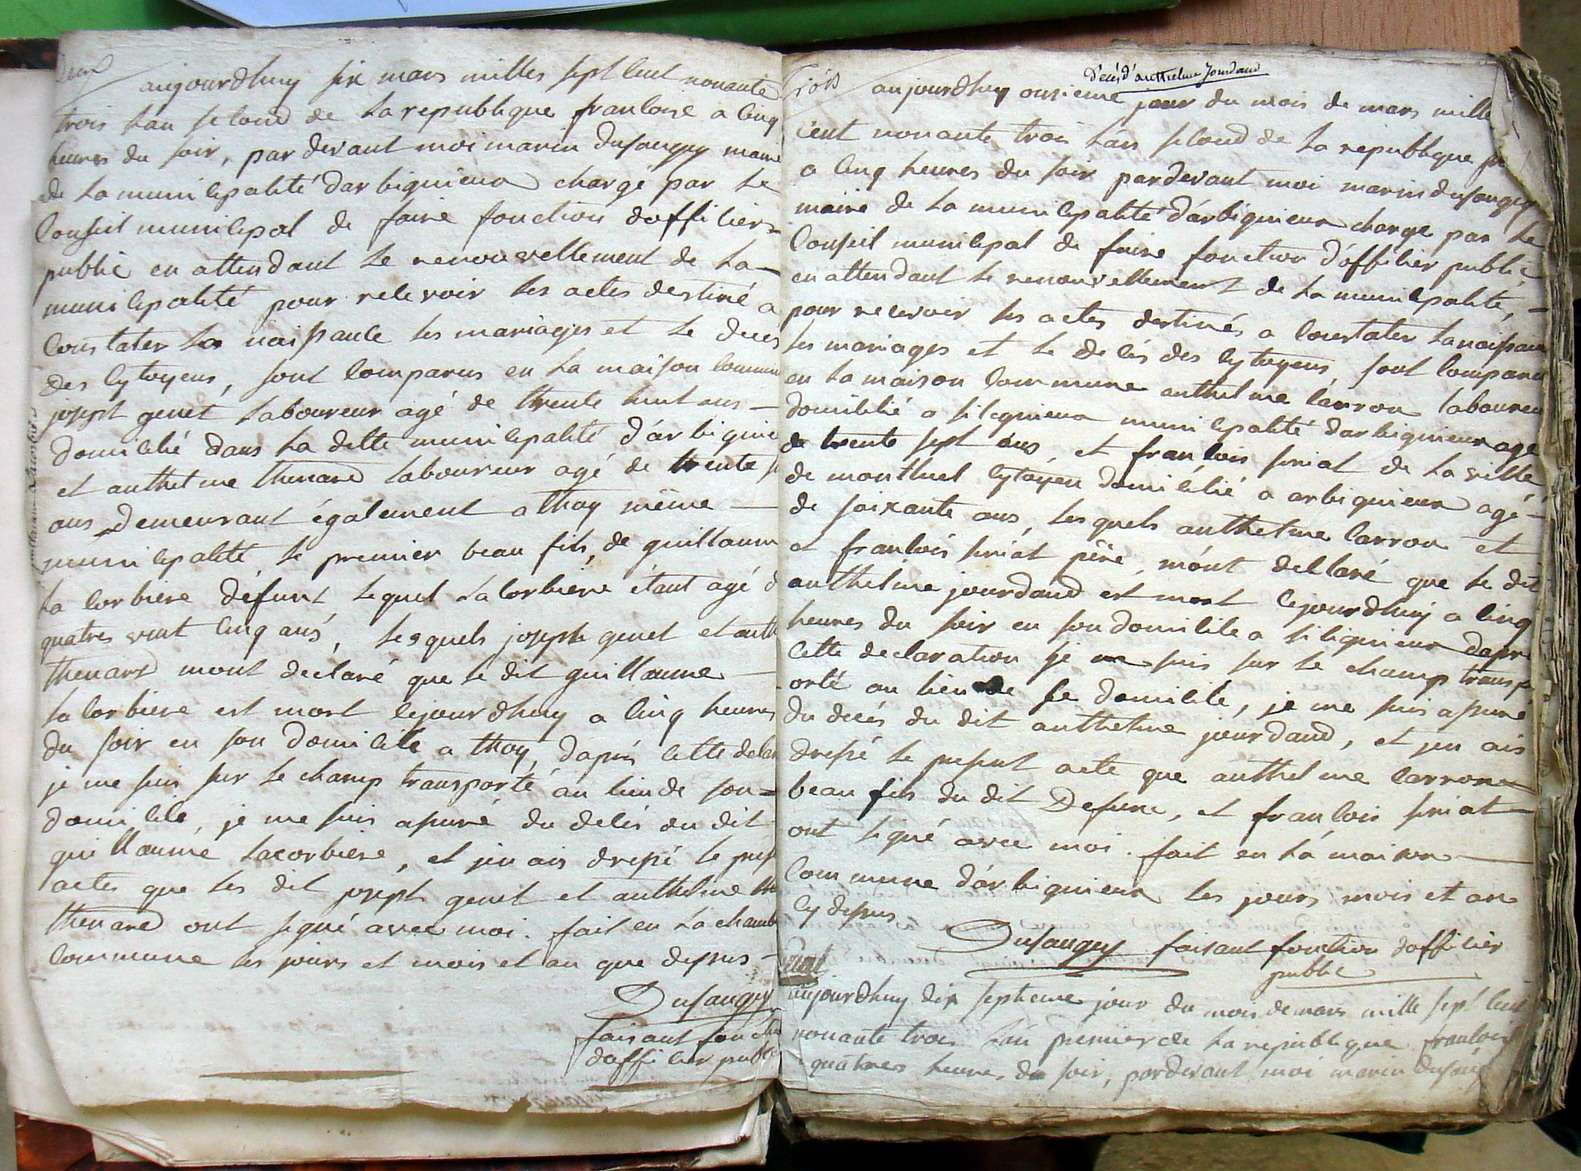 deux
aujourdhuy six mars milles sept cent nonante
trois lan second de la republique francoise a cinq
heures du soir, par devant moi marin dusauguy maire
de la municipalité darbignieux charge par le
conseil municipal de faire fonction dofficier
public en attendant le renouvellement de la
municipalité pour recevoir les actes destiné a
constater la naissance les mariages et le deces
des cytoyens, sont comparus en la maison commune
joseph genet laboureur agé de trente huit ans
domicilié dans la ditte municipalité d'arbignie
et anthelme thenard laboureur agé de trente
ans demeurant également a thoy même
municipalité, le premier beau fils, de guillaum
la corbiere défunt, lequel lacorbiere étant agé d
quatres vint cinq ans, lesquels joseph genet et anth
thenard mont déclaré que le dit guillaume
lacorbiere est mort cejourdhuy a cinq heures
du soir en son domicile a thoy, dapres cette decla
je me suis sur le champ transporté au lieu de son
domicile, je me suis assuré du décés du dit
guillaume lacorbiere, et jen ais dressé le pres
actes que les dit joseph genet et anthelme
thenard ont signé avec moi. fait en la chamb
commune les jours et mois et an que dessus
Dusauguy
faisant foncti
dofficier public
Trois
décés d'anthelme Jourdand
aujourdhuy onzieme jour du mois de mars mille
cent nonante trois lan second de la republique
a cinq heures du soir par devant moi marin dusauguy
maire de la municipalité d'arbignieux charge par le
conseil municipal de faire fonction d'officier public
en attendant le renouvellement de la municipalité,
pour recevoir les actes destinés a constater la naissance
les mariages et le decés des cytoyens sont comparu
en la maison commune anthelme carron laboureu
domicilié a silignieux municipalité darbignieux agé
de trente sept ans, et francois priat de la ville
de montluel cytoyen domicilié a arbignieux agé
de soixante ans, lesquels anthelme carron et
et francois priat père, m'ont déclaré que le dit
anthelme jourdand est mort cejourdhuy a cinq
heures du soir en son domicile a silignieux dapre
cette declaration je me suis sur le champ transp
orté au lieu de se domicile, je me suis assuré
du decés du dit anthelme jourdand, et jen ais
dressé le present acte que anthelme carron
beau fils du dit defunt, et francois priat
ont signé avec moi. fait en la maison
commune d'arbignieux les jours mois et an
cy dessus
Dusauguy faisant fonction dofficier
public
quat
aujourdhuy dix septieme jour du mois de mars mille sept cent
nonante trois lan premier de la republique francois
quatres heures du soir, pardevant moi marin dusau